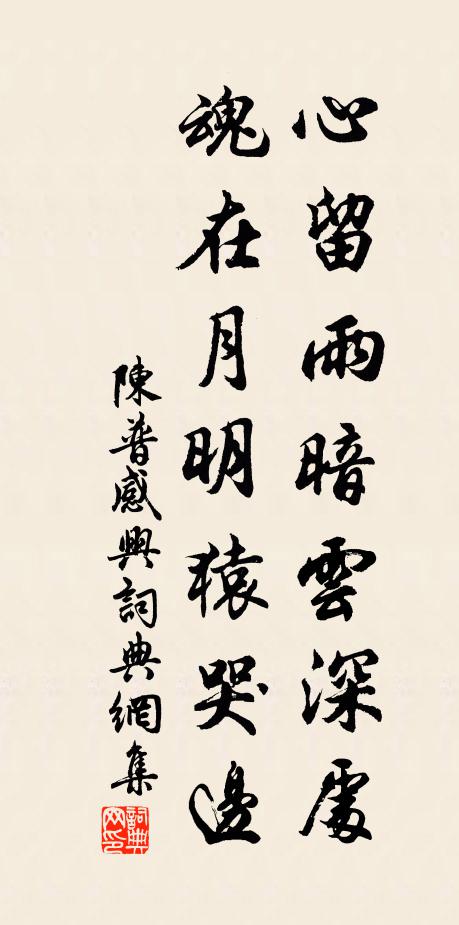 心留雨暗雲深處
魂在月明猿哭邊
陳普感興詞典網集
詞典網印